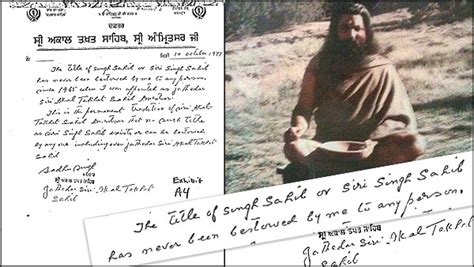 ਦਫਤਰ
ਸ੍ਰੀ ਅਕਾਲ ਤਖਤ ਸਾਹਿਬ, ਸ੍ਰੀ ਅੰਮ੍ਰਿਤਸਰ ਜੀ
10 October 1977
The title of Singh Sahib or Siri Singh Sahib
has never been bestowed by me to any person,
since 1965 when I was appointed as Jathedar
Siri Akal Takhat Sahib Amritsar.
This is the permanent tradition of Siri Akal
Takhat Sahib Amritsar that no such title
as Siri Singh Sahib exists or can be bestowed
by any one including even Jathedar Akal Takhat
Sahib
Sadhu Singh
Jathedar Siri Akal Takhat
Sahib
Exhibit
A4
The title of Singh Sahib or Siri Singh Sahib
has never been bestowed by me to any person,
Jathedar Siri Akal Takhat
Sahib